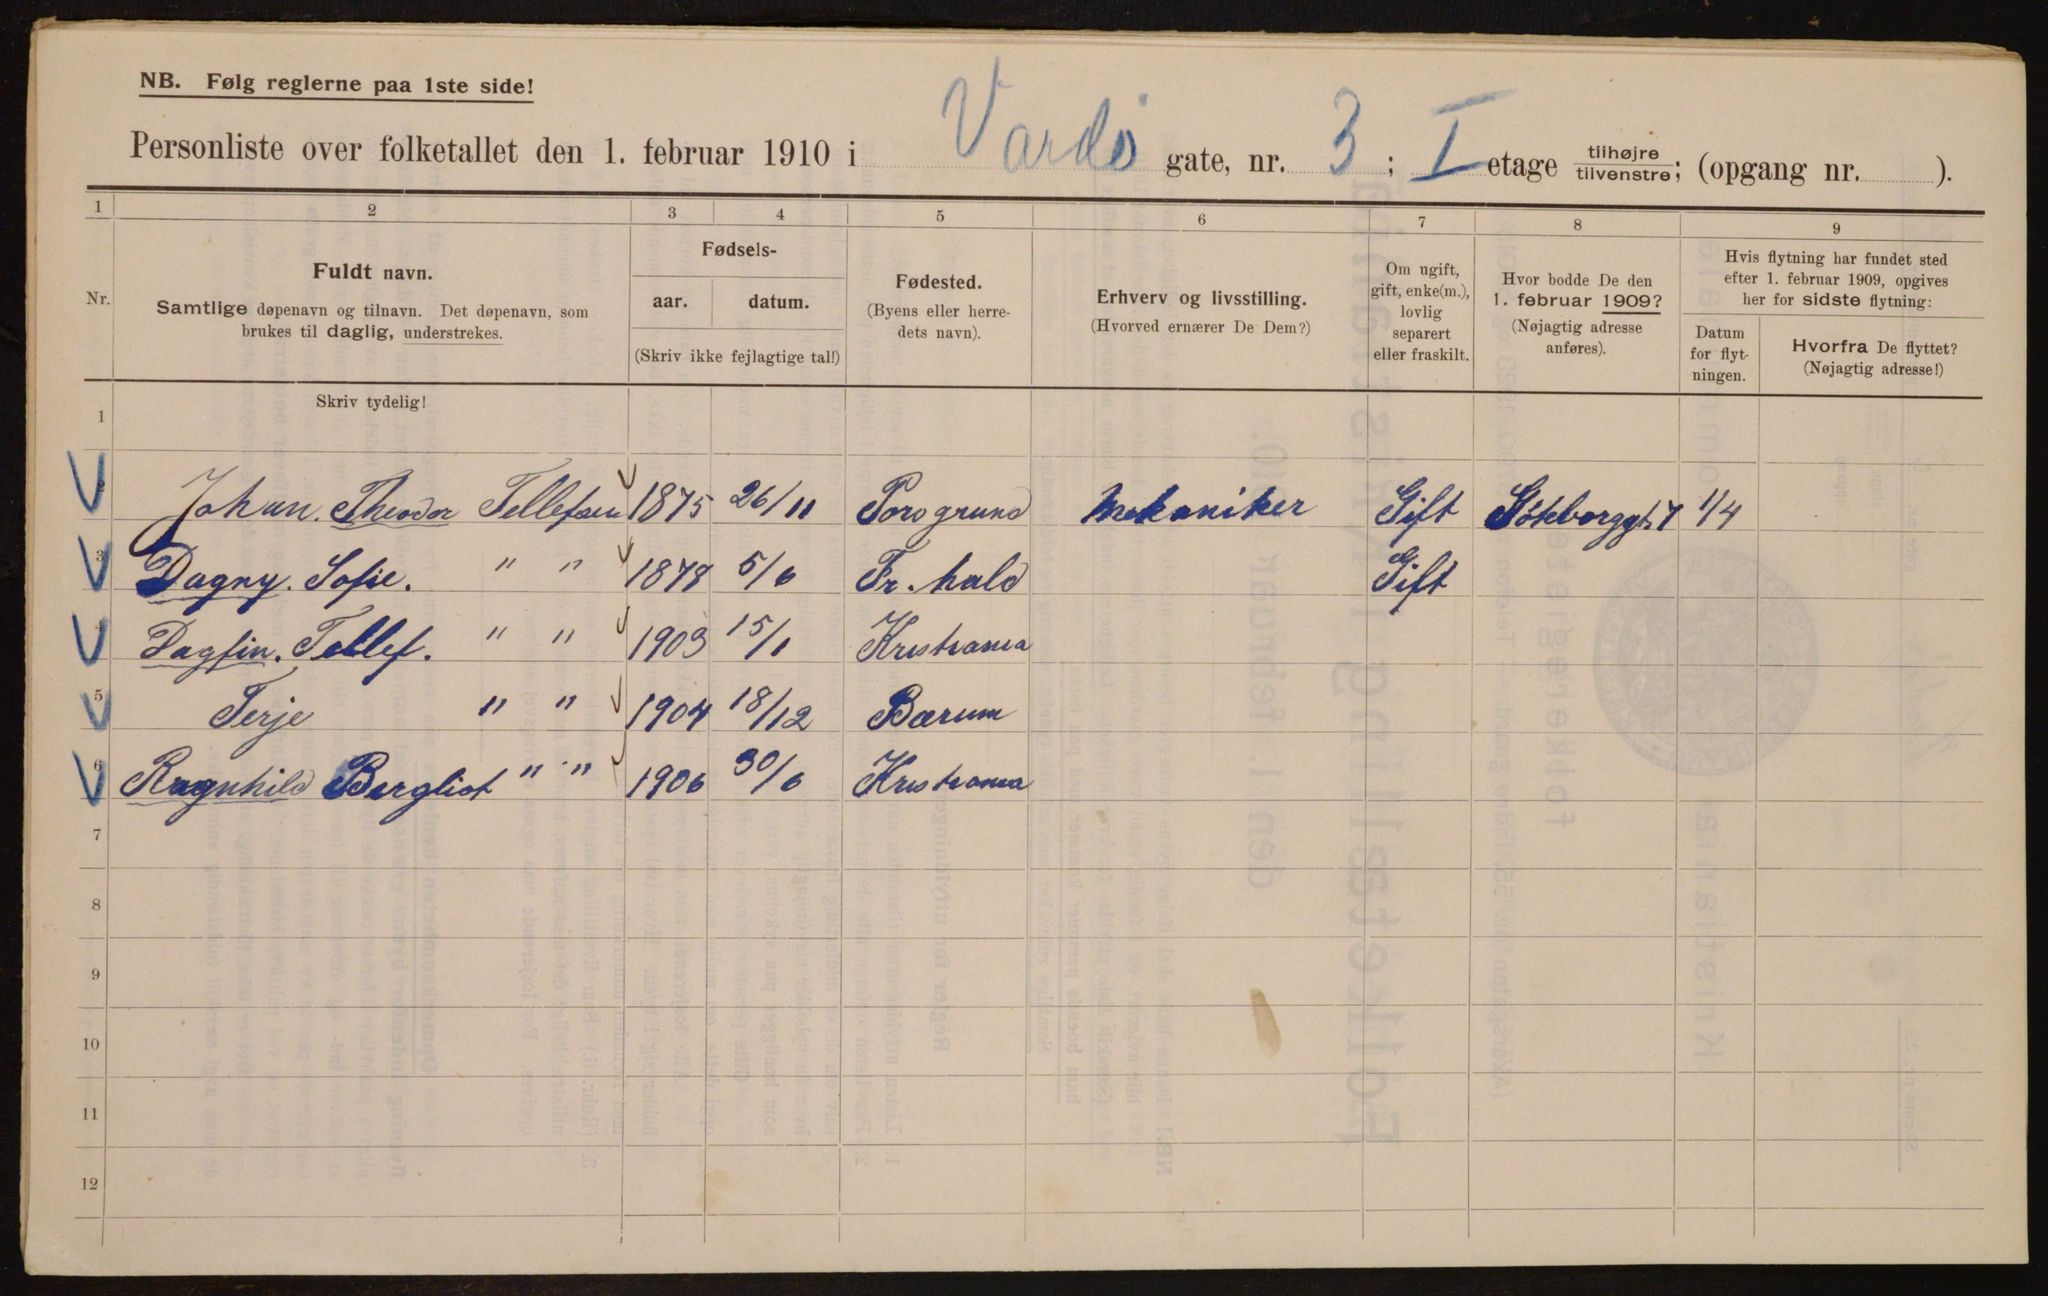 NB. Følg reglerne paa 1ste side!
Personliste over folketallet den 1. februar 1910 i Vardø gate, nr. 3 ; I etage tilhøjre tilvenstre; (opgang nr. ).
1 2 3 4 5 6 7 8 9
Nr.
Fuldt navn.
Samtlige døpenavn og tilnavn. Det døpenavn, som
brukes til daglig, understrekes.
Fødsels-
aar. datum.
(Skriv ikke fejlagtige tal!)
Fødested.
(Byens eller herre-
dets navn).
Erhverv og livsstilling.
(Hvorved ernærer De Dem?)
Om ugift,
gift, enke(m.),
lovlig
separert
eller fraskilt.
Hvor bodde De den
1. februar 1909?
(Nøjagtig adresse
anføres).
Hvis flytning har fundet sted
efter 1. februar 1909, opgives
her for sidste flytning:
Datum
for flyt-
ningen.
Hvorfra De flyttet?
(Nøjagtig adresse!)
Skriv tydelig!
1
2 Johan. Theodor Tellefsen 1875 26/11 Porsgrund Mekaniker Gift Göteborggt. 7 1/4
3 Dagny. Sofie. " " 1878 5/6 Fr. hald Gift
4 Dagfin. Tellef. " " 1903 15/1 Kristiania
5 Terje " " 1904 18/12 Bærum
6 Ragnhild Bergliot " " 1906 30/6 Kristiania
7
8
9
10
11
12